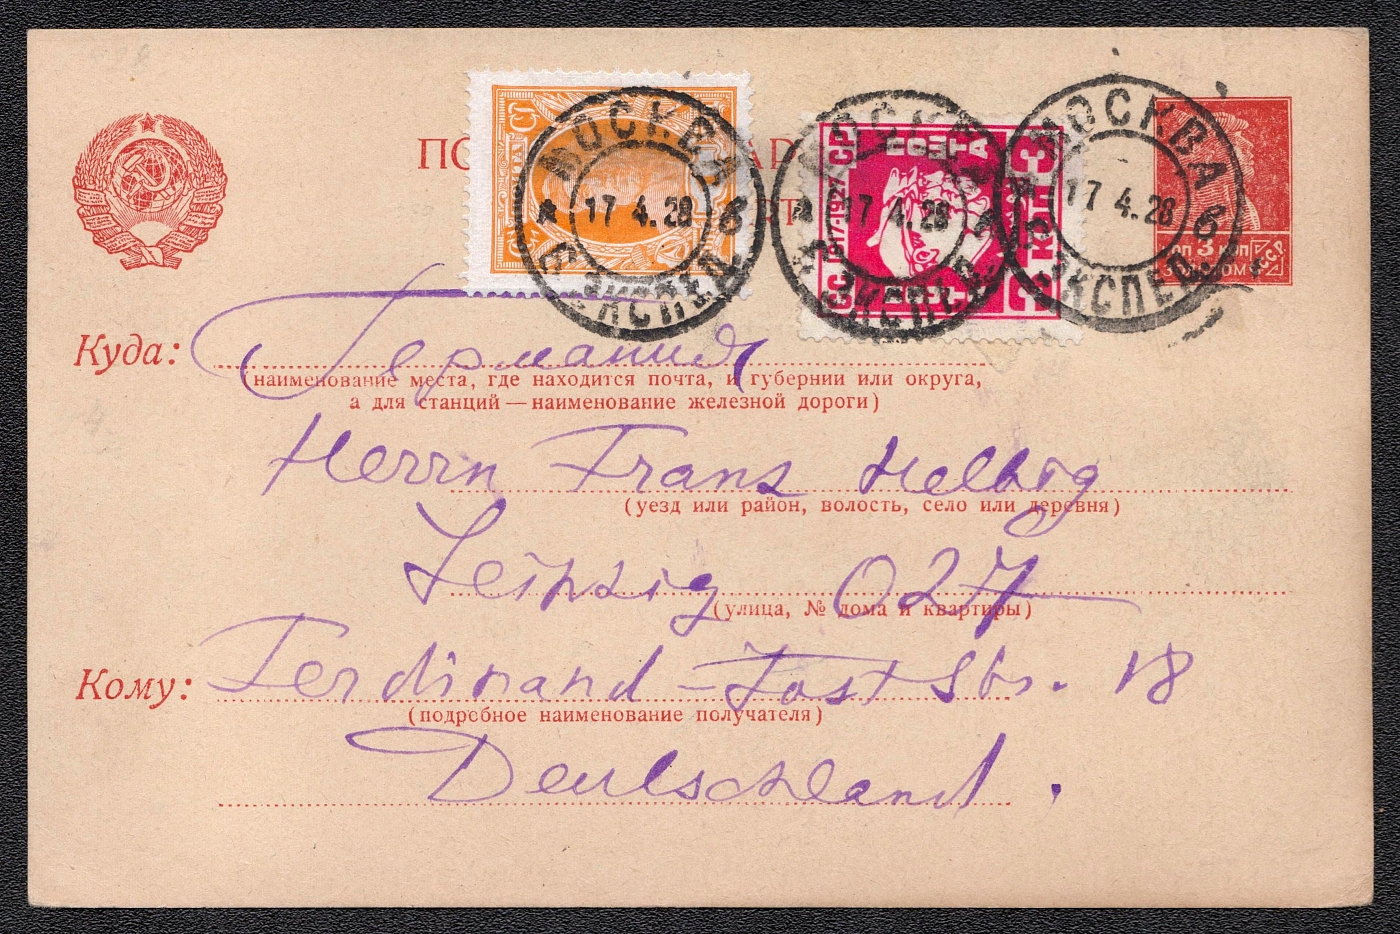 МОСКВА 6
17 4.28
ЭКСПЕД.
МОСКВА
17 4.28
ЭКСПЕД.
МОСКВА 6
17 4.28
ЭКСПЕД.
1917-1927
ПОЧТА
3 КОП
коп 3 коп
Куда: Германия
(наименование места, где находится почта, и губернии или округа,
а для станций — наименование железной дороги)
Herrn Franz Helbig
(уезд или район, волость, село или деревня)
Leipzig O27
(улица, № дома и квартиры)
Кому: Ferdinand-Jost Str. 18
(подробное наименование получателя)
Deutschland.